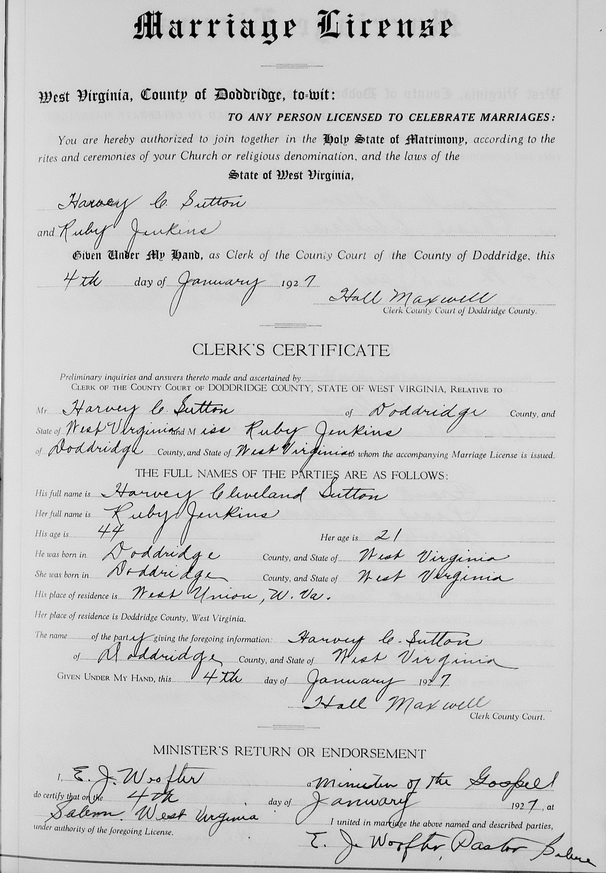 Marriage License
West Virginia, County of Doddridge, to wit:
TO ANY PERSON LICENSED TO CELEBRATE MARRIAGES:
You are hereby authorized to join together in the Holy State of Matrimony, according to the
rites and ceremonies of your Church or religious denomination, and the laws of the
State of West Virginia,
Harvey C Sutton
and Ruby Jenkins
Given Under My Hand, as Clerk of the County Court of the County of Doddridge, this
4th day of January 1927
Hall Maxwell
Clerk County Court of Doddridge County.
CLERK'S CERTIFICATE
Preliminary inquiries and answers thereto made and ascertained by
CLERK OF THE COUNTY COURT OF DODDRIDGE COUNTY, STATE OF WEST VIRGINIA, RELATIVE TO
Mr Harvey C Sutton of Doddridge County, and
State of West Virginia and Miss Ruby Jenkins
of Doddridge County, and State of West Virginia to whom the accompanying Marriage License is issued.
THE FULL NAMES OF THE PARTIES ARE AS FOLLOWS:
His full name is Harvey Cleveland Sutton
Her full name is Ruby Jenkins
His age is 44 Her age is 21
He was born in Doddridge County, and State of West Virginia
She was born in Doddridge County, and State of West Virginia
His place of residence is West Union, W. Va.
Her place of residence is Doddridge County, West Virginia.
The name of the party giving the foregoing information: Harvey C. Sutton
of Doddridge County, and State of West Virginia
GIVEN UNDER MY HAND, this 4th day of January 1927
Hall Maxwell
Clerk County Court.
MINISTER'S RETURN OR ENDORSEMENT
I, E. J. Woofter a Minister of the Gospel
do certify that on the 4th day of January 1927, at
Salem West Virginia I united in marriage the above named and described parties,
under authority of the foregoing License.
E. J. Woofter, Pastor Salem